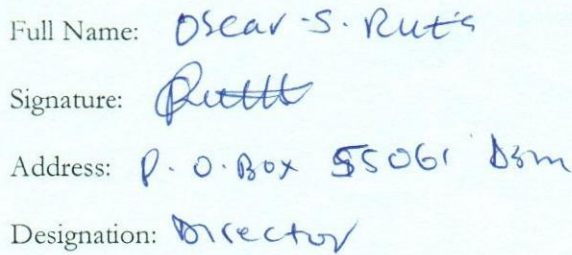 Full Name: Oscar S. Ruta
Signature:
Address: P.O. Box 55061 Dsm
Designation: Director